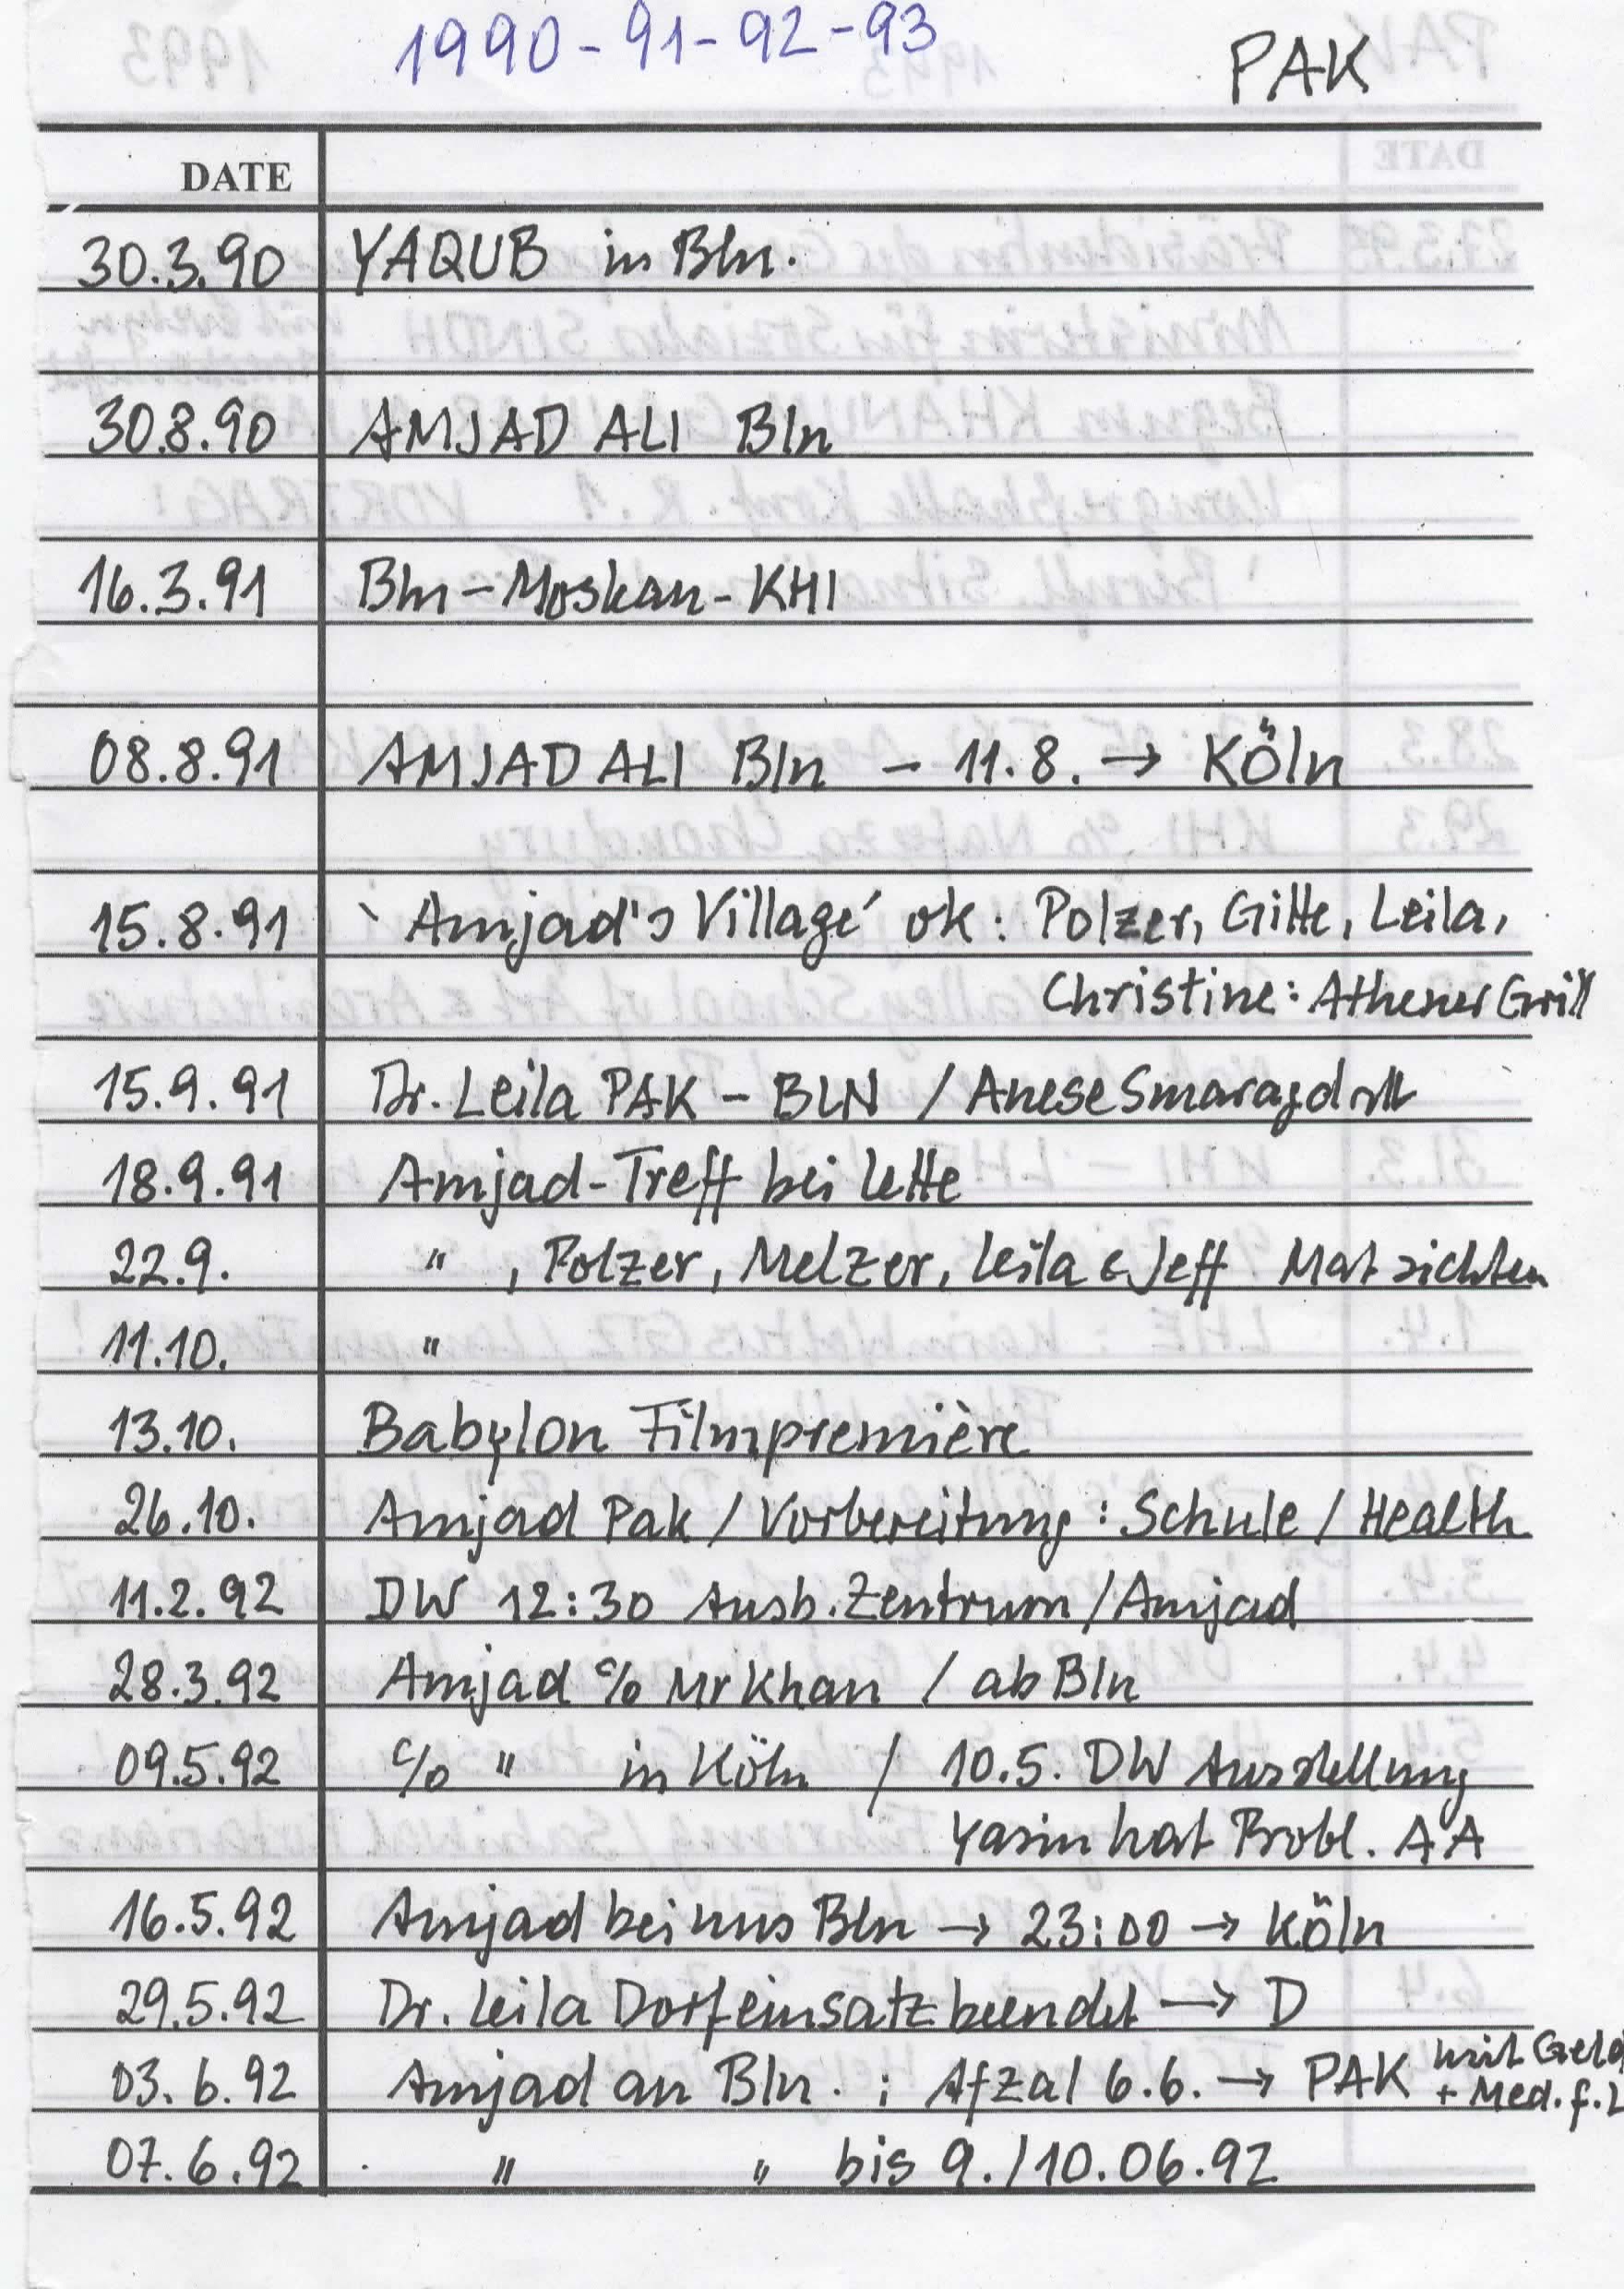 1990-91-92-93
PAK
DATE
30.3.90 YAQUB in Bln.
30.8.90 AMJAD ALI Bln
16.3.91 Bln - Moskau - KHI
08.8.91 AMJAD ALI Bln - 11.8. → Köln
15.8.91 `Amjad's Village´ ok: Polzer, Gitte, Leila,
Christine: Athener Grill
15.9.91 Dr. Leila PAK - BLN /
18.9.91 Amjad-Treff bei Lette
22.9. " , Polzer, Melzer, Leila & Jeff Mat sichten
11.10. "
13.10. Babylon Filmpremière
26.10. Amjad Pak / Vorbereitung: Schule / Health
11.2.92 DW 12:30 Ausb. Zentrum / Amjad
28.3.92 Amjad c/o Mr Khan / ab Bln
09.5.92 c/o " in Köln / 10.5. DW Ausstellung
Yasin hat Probl. AA
16.5.92 Amjad bei uns Bln → 23:00 → Köln
29.5.92 Dr. Leila Dorfeinsatz beendet → D
03.6.92 Amjad an Bln. : Afzal 6.6. → PAK mit Geld
+ Med. f. L
07.6.92 " " bis 9./10.06.92